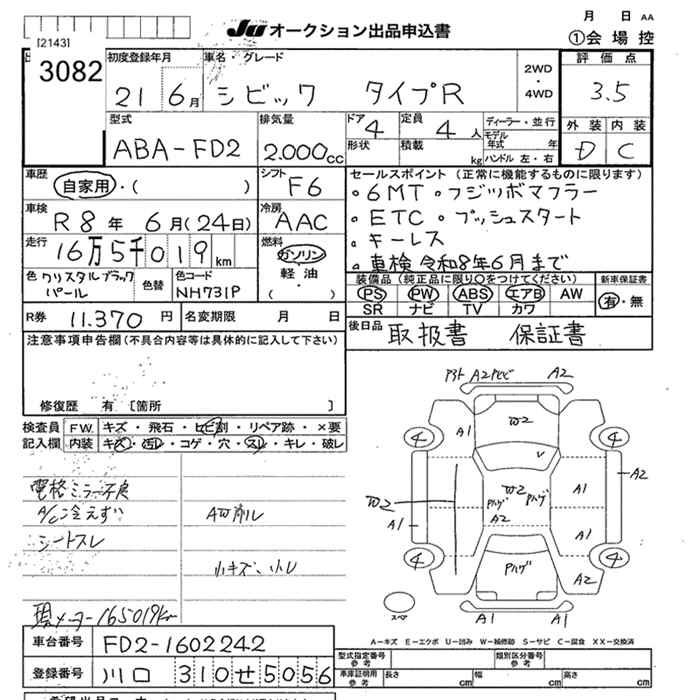 JU オークション出品申込書
月 日 AA
①会場控
[2143]
3082
初度登録年月 車名・グレード
21 6月 シビック タイプR
2WD・4WD
評価点
3.5
外装 内装
D C
型式 排気量
ABA-FD2 2.000cc
ドア 4 定員 4人
形状 積載 kg
ディーラー・並行
モデル年式 年
ハンドル 左・右
車歴 シフト
自家用・( ) F6
車検 冷房
R8年 6月(24日) AAC
走行 燃料
16万5千019km
ガソリン
軽油
・( )
色 クリスタルブラックパール 色替
色コード NH731P
セールスポイント(正常に機能するものに限ります)
。6MT 。フジツボマフラー
。ETC 。プッシュスタート
。キーレス
。車検 令和8年6月まで
装備品(純正品に限り○をつけてください) 新車保証書
PS PW ABS エアB AW
SR ナビ TV カワ
有・無
R券 11.370円 名変期限 月 日
後日品 取扱書 保証書
注意事項申告欄(不具合内容等は具体的に記入して下さい)
修復歴 有〔箇所 〕
検査員記入欄
F.W. キズ・飛石・ヒビ割・リペア跡・×要
内装 キズ・汚レ・コゲ・穴・スレ・キレ・破レ
電格ミラー不良
A/C冷えず
シートスレ
小キズ、小レ
現メーター165019km
A2 A2
A1
4 4
A2
A1
A2
A1
A1
4 4
Pハゲ
A2
スペア
A1 A1
A-キズ E-エクボ U-凹み W-補修跡 S-サビ C-腐食 XX-交換済
車台番号 FD2-1602242
登録番号 川口 310 せ 5056
型式指定番号 参考 類別区分番号 参考
車庫証明用 参考 長さ cm 幅 cm 高さ cm